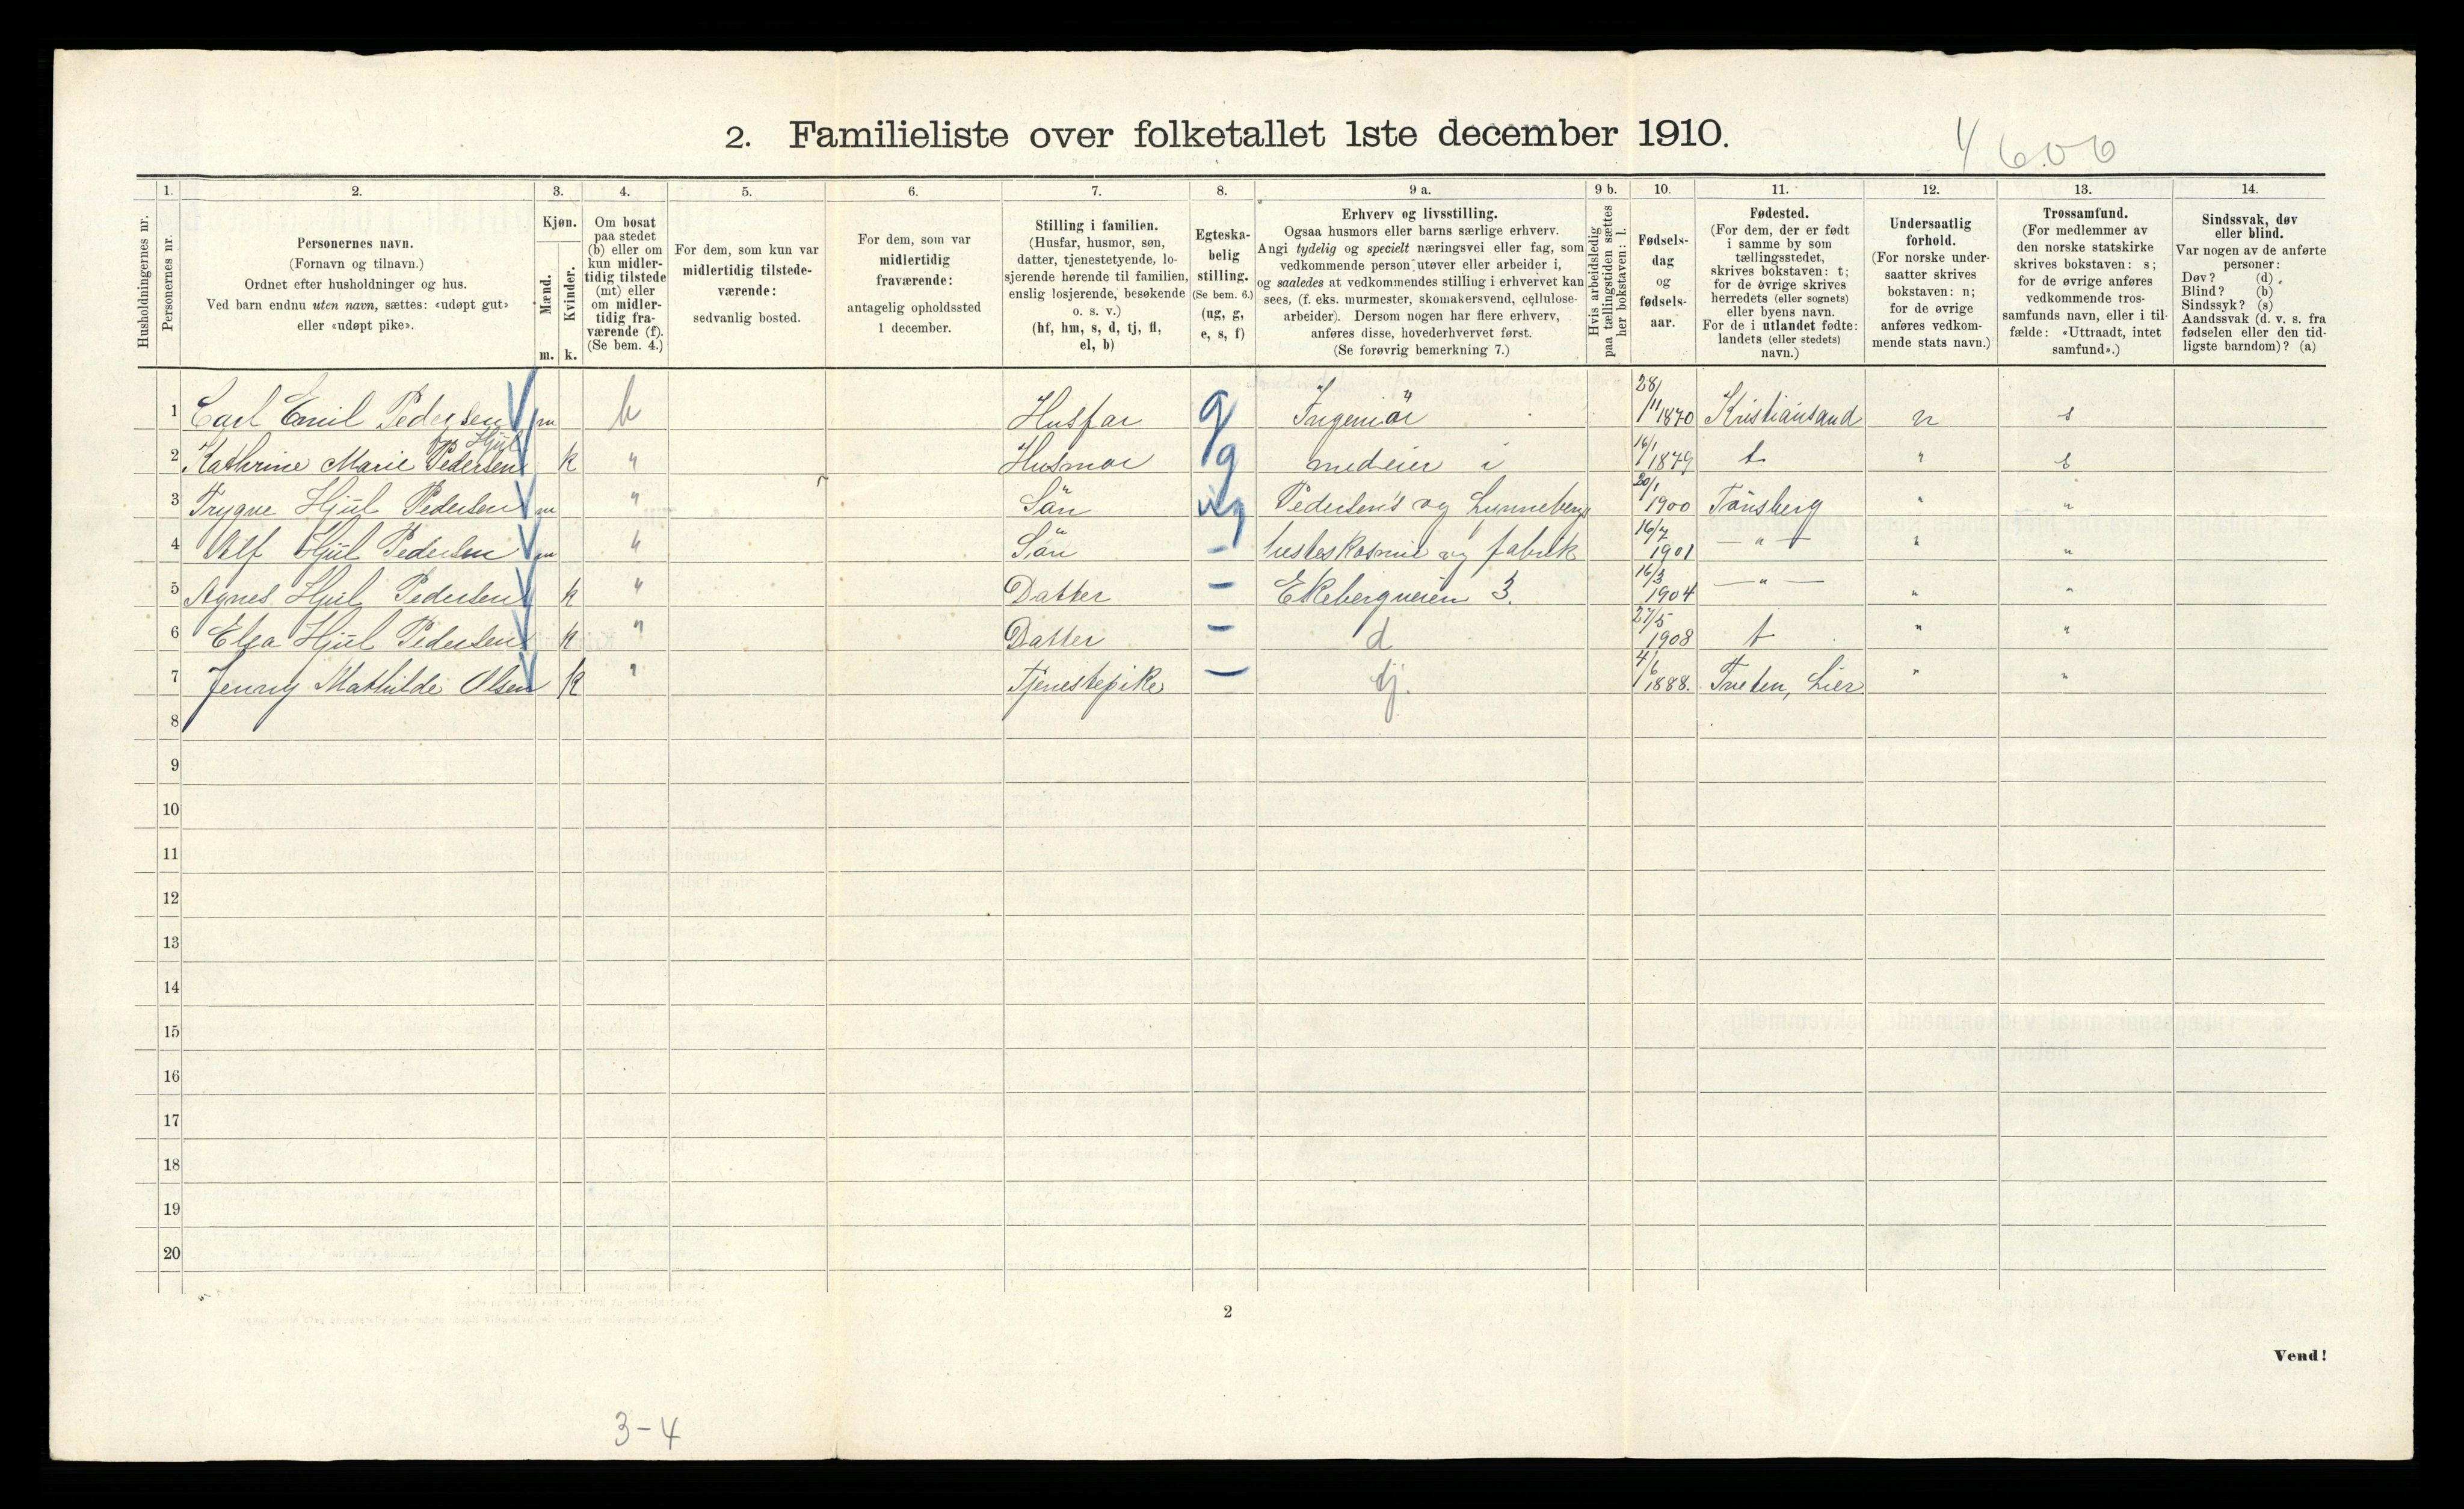 2. Familieliste over folketallet 1ste december 1910.
4 606
1. 2. 3. 4. 5. 6. 7. 8. 9 a. 9 b. 10. 11. 12. 13. 14.
Husholdningernes nr.
Personernes nr.
Personernes navn.
(Fornavn og tilnavn.)
Ordnet efter husholdninger og hus.
Ved barn endnu uten navn, sættes: «udøpt gut»
eller «udøpt pike».
Kjøn.
Mænd.
Kvinder.
m. k.
Om bosat
paa stedet
(b) eller om
kun midler-
tidig tilstede
(mt) eller
om midler-
tidig fra-
værende (f).
(Se bem. 4.)
For dem, som kun var
midlertidig tilstede-
værende:
sedvanlig bosted.
For dem, som var
midlertidig
fraværende:
antagelig opholdssted
1 december.
Stilling i familien.
(Husfar, husmor, søn,
datter, tjenestetyende, lo-
sjerende hørende til familien,
enslig losjerende, besøkende
o. s. v.)
(hf, hm, s, d, tj, fl,
el, b)
Egteska-
belig
stilling.
(Se bem. 6.)
(ug, g,
e, s, f)
Erhverv og livsstilling.
Ogsaa husmors eller barns særlige erhverv.
Angi tydelig og specielt næringsvei eller fag, som
vedkommende person utøver eller arbeider i,
og saaledes at vedkommendes stilling i erhvervet kan
sees, (f. eks. murmester, skomakersvend, cellulose-
arbeider). Dersom nogen har flere erhverv,
anføres disse, hovederhvervet først.
(Se forøvrig bemerkning 7.)
Hvis arbeidsledig
paa tællingstiden sættes
her bokstaven: l.
Fødsels-
dag
og
fødsels-
aar.
Fødested.
(For dem, der er født
i samme by som
tællingsstedet,
skrives bokstaven: t;
for de øvrige skrives
herredets (eller sognets)
eller byens navn.
For de i utlandet fødte:
landets (eller stedets)
navn.)
Undersaatlig
forhold.
(For norske under-
saatter skrives
bokstaven: n;
for de øvrige
anføres vedkom-
mende stats navn.)
Trossamfund.
(For medlemmer av
den norske statskirke
skrives bokstaven: s;
for de øvrige anføres
vedkommende tros-
samfunds navn, eller i til-
fælde: «Uttraadt, intet
samfund».)
Sindssvak, døv
eller blind.
Var nogen av de anførte
personer:
Døv? (d)
Blind? (b)
Sindssyk? (s)
Aandssvak (d. v. s. fra
fødselen eller den tid-
ligste barndom)? (a)
1 Carl Emil Pedersen m b Husfar g Ingeniør 28/11 1870 Kristiansand n s
født Hjul
2 Kathrine Marie Pedersen k " Husmor g medeier i 16/1 1879 t " s
3 Trygve Hjul Pedersen m " Sön ug Pedersen's og Lunneberg 20/1 1900 Tönsberg " "
4 Alf Hjul Pedersen m " Sön - hesteskosmie og fabrik 16/7 1901 — " — " "
5 Agnes Hjul Pedersen k " Datter - Ekebergveien 3. 16/3 1904 — " — " "
6 Elsa Hjul Pedersen k " Datter - d 27/5 1908 t " "
7 Jenny Mathilde Olsen k " Tjenestepike - tj. 4/6 1888. Tveten, Lier " "
8
9
10
11
12
13
14
15
16
17
18
19
20
2
Vend!
3-4